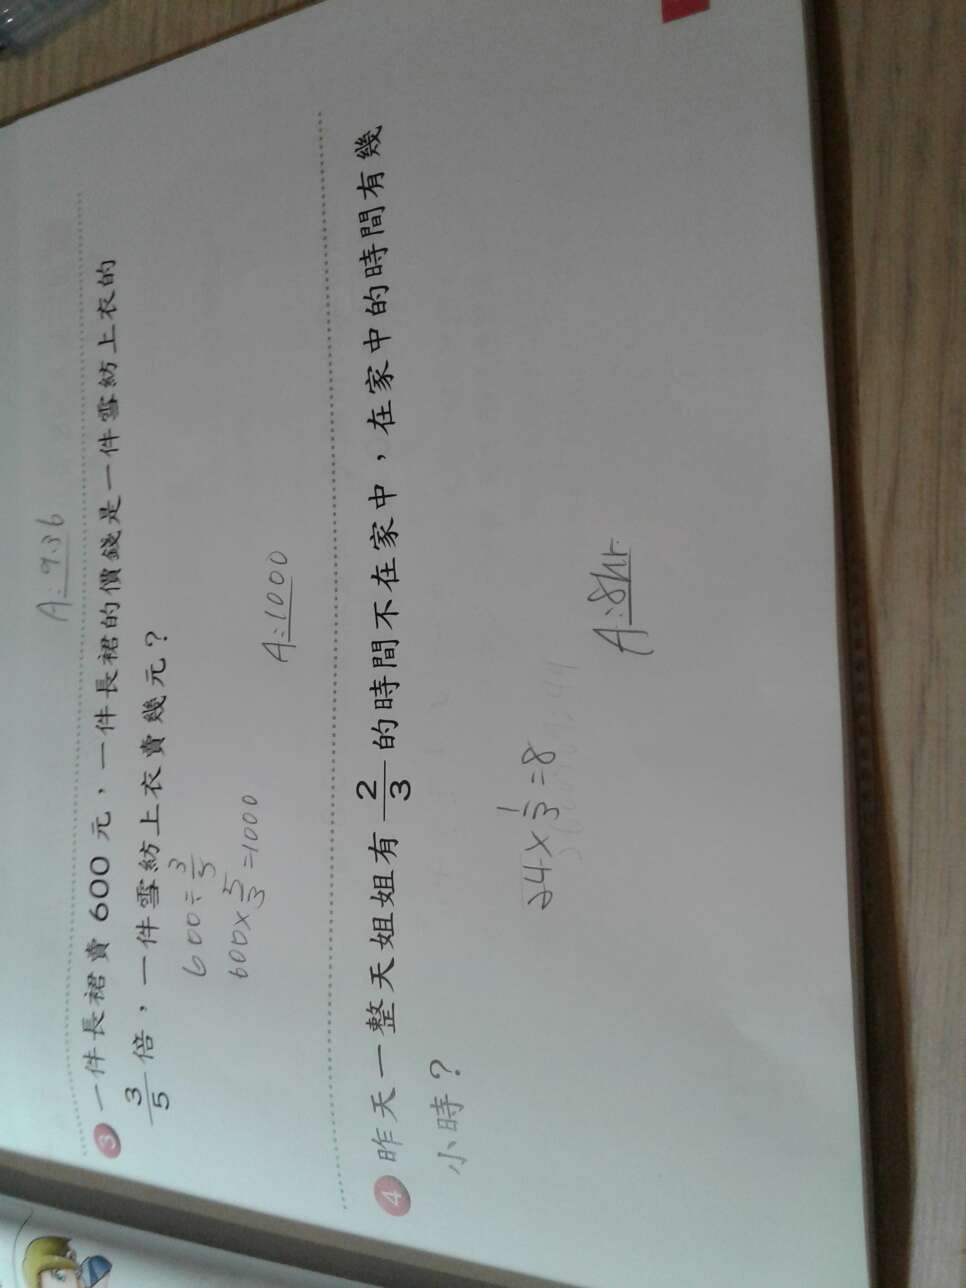 A：936
3 一件長裙賣 600 元，一件長裙的價錢是一件雪紡上衣的
3/5 倍，一件雪紡上衣賣幾元？
600÷3/5
600×5/3=1000
A：1000
4 昨天一整天姐姐有 2/3 的時間不在家中，在家中的時間有幾
小時？
24×1/3=8
A：8hr.